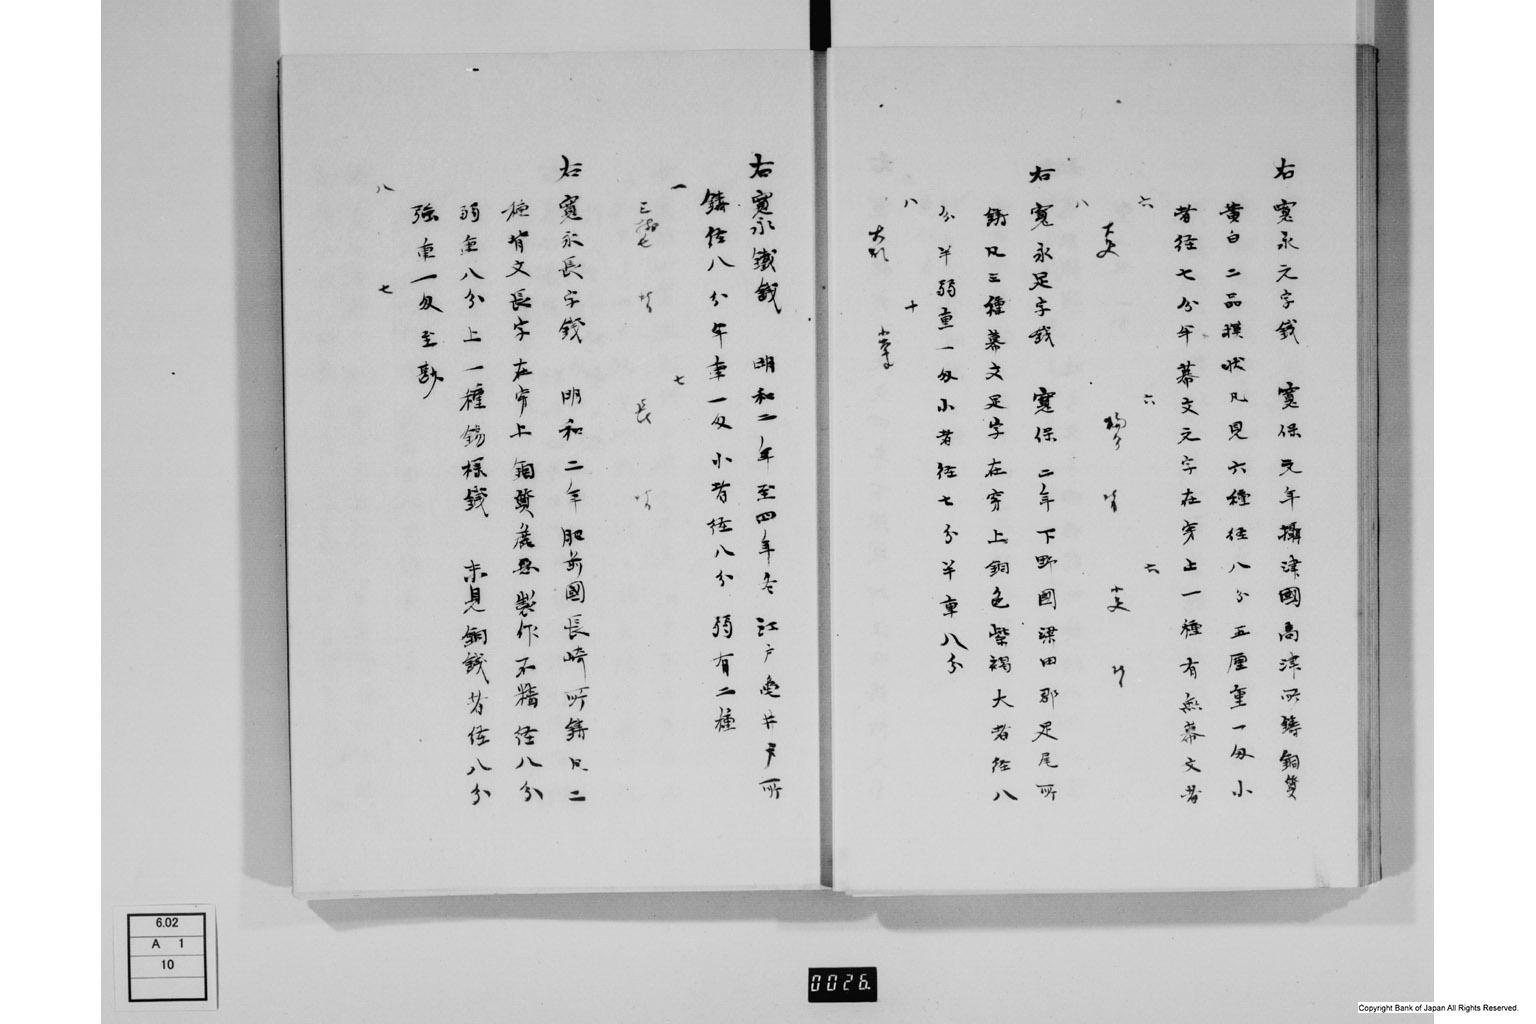 右寛永元字銭　寛保元年攝津國高津所鋳銅質
黄白二品模状凡見六種径八分五厘重一匁小
者径七分半幕文元字在穿上一種有無幕文者
六　六　六
大文　背　小文　背
八
右寛永足字銭　寛保二年下野國梁田郡足尾所
鋳凡三種幕文足字在穿上銅色紫褐大者径八
分半弱重一匁小者径七分半重八分
八　十
大形　小字
右寛永鐵銭　明和二年至四年冬江戸亀井戸所
鋳径八分半重一匁小者径八分弱有二種
一　七
背　長　背
右寛永長字銭　明和二年肥前國長崎所鋳凡二
種背文長字在穿上銅質麁悪製作不精径八分
弱重八分上一種錫様銭　未見銅銭者径八分
強重一匁至尠
八　七
6.02
A 1
10
0026.
Copyright Bank of Japan All Rights Reserved.